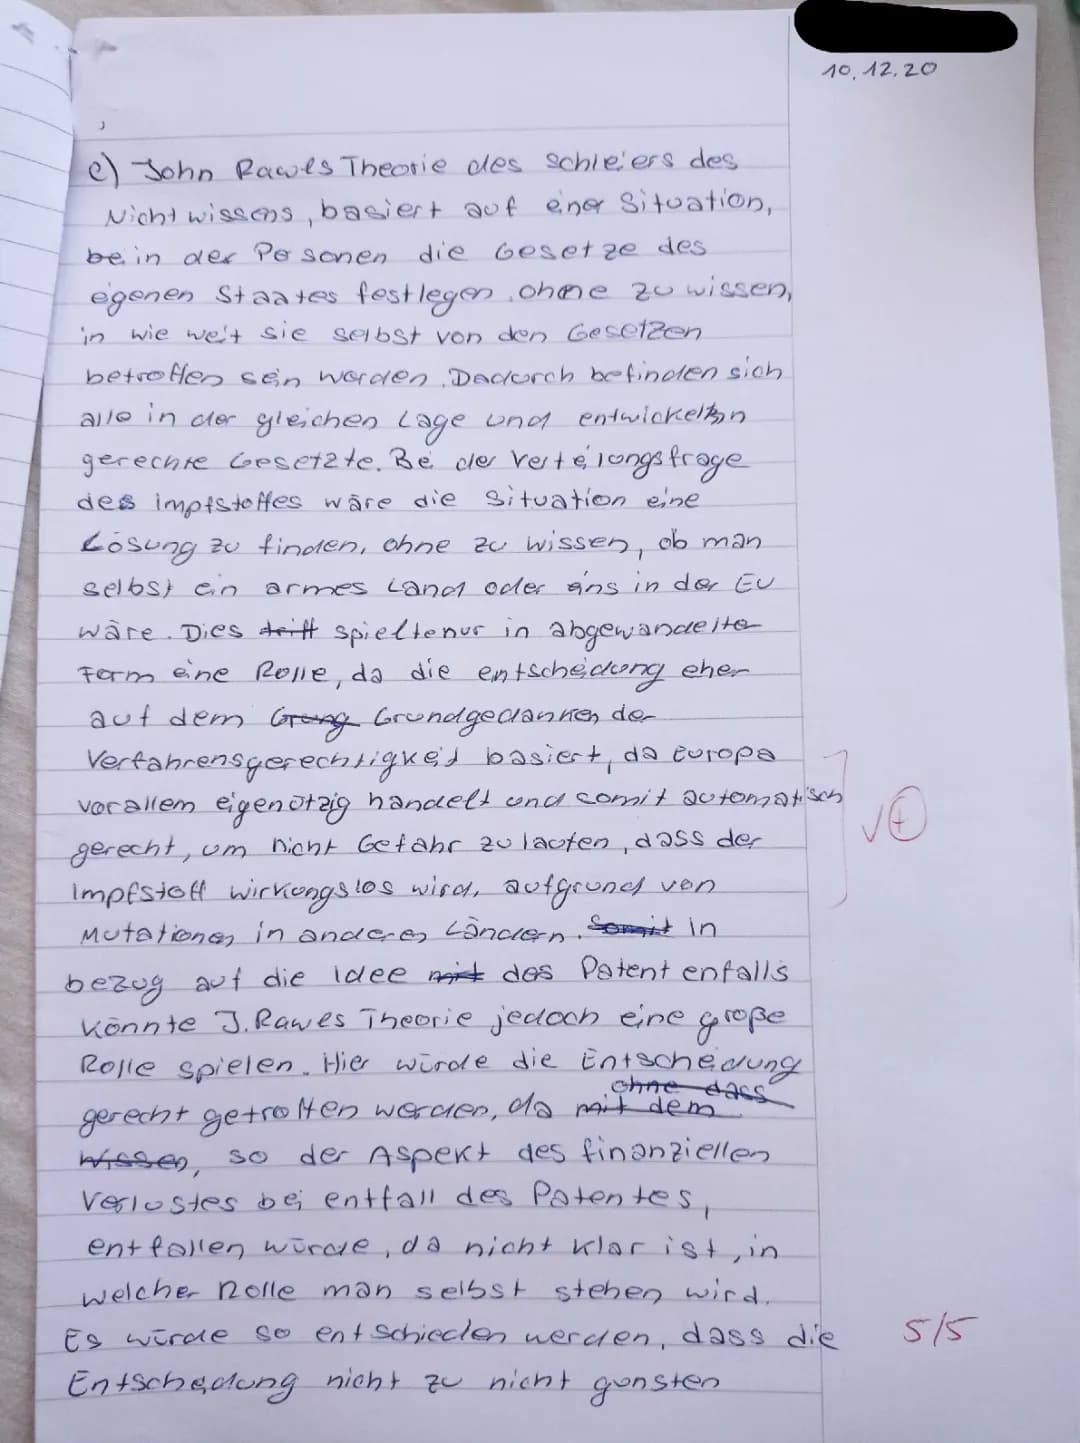 10.12.20
e) John Rawls Theorie des schleiers des
Nichtwissens, basiert auf einer Situation,
bei in der Personen die Gesetze des
eigenen Staates festlegen ohne zu wissen,
in wie weit sie selbst von den Gesetzen
betroffen sein werden. Dadurch befinden sich
alle in der gleichen Lage und entwickeln
gerechte Gesetzte. Bei der Verteilungsfrage
des impfstoffes wäre die Situation eine
Lösung zu finden, ohne zu wissen, ob man
selbst ein armes Land oder eins in der EU
wäre. Dies triff spielte nur in abgewandelter
Form eine Rolle, da die entscheidung eher
auf dem Grung Grundgedanken der
Verfahrensgerechtigkeit basiert, da Europa
vorallem eigenützig handelt und somit automatisch
gerecht, um nicht Gefahr zu laufen, dass der
Impfstoff wirkungslos wird, aufgrund von
Mutationen in anderen Ländern. Somit in
bezug auf die Idee mit des Patent enfalls
könnte J. Rawes Theorie jedoch eine große
Rolle spielen. Hier würde die Entscheidung
gerecht getroffen werden, da mit dem ohne dass
wissen, so der Aspekt des finanziellen
Verlustes bei entfall des Patentes,
entfallen würde, da nicht klar ist, in
welcher Rolle man selbst stehen wird.
Es würde so entschieden werden, dass die
Entscheidung nicht zu nicht gunsten
√ +
5/5